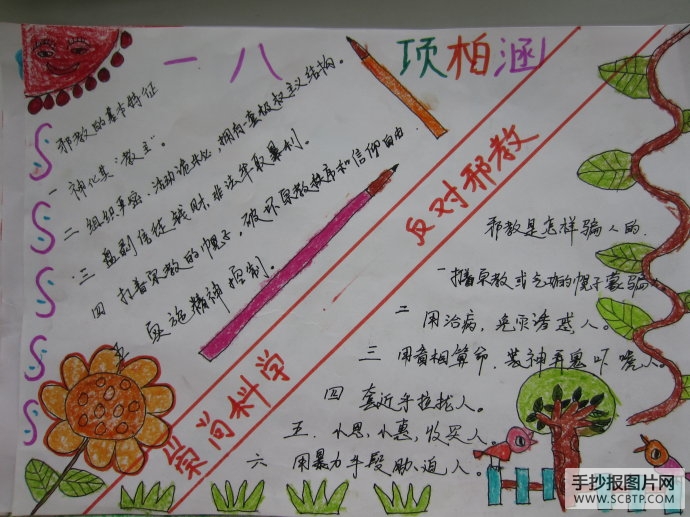 一八 项柏涵
邪教的基本特征
一 神化其"教主"。
二 组织严密,活动诡秘,拥有一套极权主义结构。
三 盘剥信徒钱财,非法牟取暴利。
四 打着宗教的幌子,破坏宗教秩序和信仰自由
五 实施精神控制。
崇尚科学
反对邪教
邪教是怎样骗人的.
一 打着宗教或气功的幌子蒙骗
二 用治病,免灾诱惑人。
三 用看相算命,装神弄鬼吓唬人。
四 套近乎拉拢人。
五.小恩,小惠,收买人。
六 用暴力手段胁迫人。
手抄报图片网
WWW.SCBTP.COM